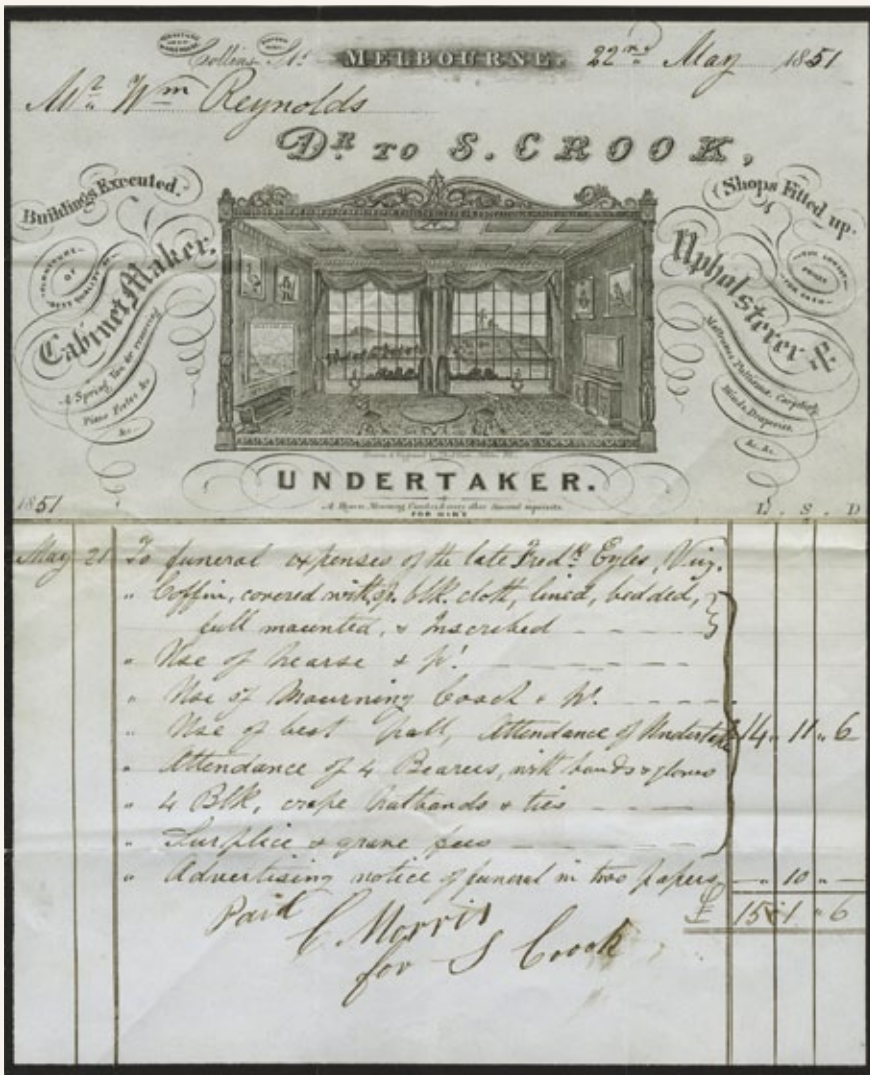 Collins St. MELBOURNE. 22nd May 1851
Mr. Wm Reynolds
DR TO S. CROOK,
Buildings Executed.
Shops Fitted up.
FURNITURE OF BEST QUALITY
Cabinet Maker,
Upholsterer &
A Spring Van for removing
Piano Fortes &c
&c.
Mattresses, Palliasses, Carpets,
Blinds, Draperies,
&c. &c.
UNDERTAKER.
FOR HIRE
1851 L. S. D
May 21 To funeral expenses of the late Fredk Eyles, Viz.
" Coffin, covered with blk. cloth, lined, bedded,
full mounted, & Inscribed
" Use of hearse & pr.
" Use of Mourning Coach & pr.
" Use of best pall, Attendance of Undertaker 14 " 11 " 6
" Attendance of 4 Bearers, with bands & gloves
" 4 Blk, crape hatbands & ties
" Surplice & grave fees
" Advertising notice of funeral in two papers — " 10 " —
£ 15 " 1 " 6
Paid
C Morris
for S Crook